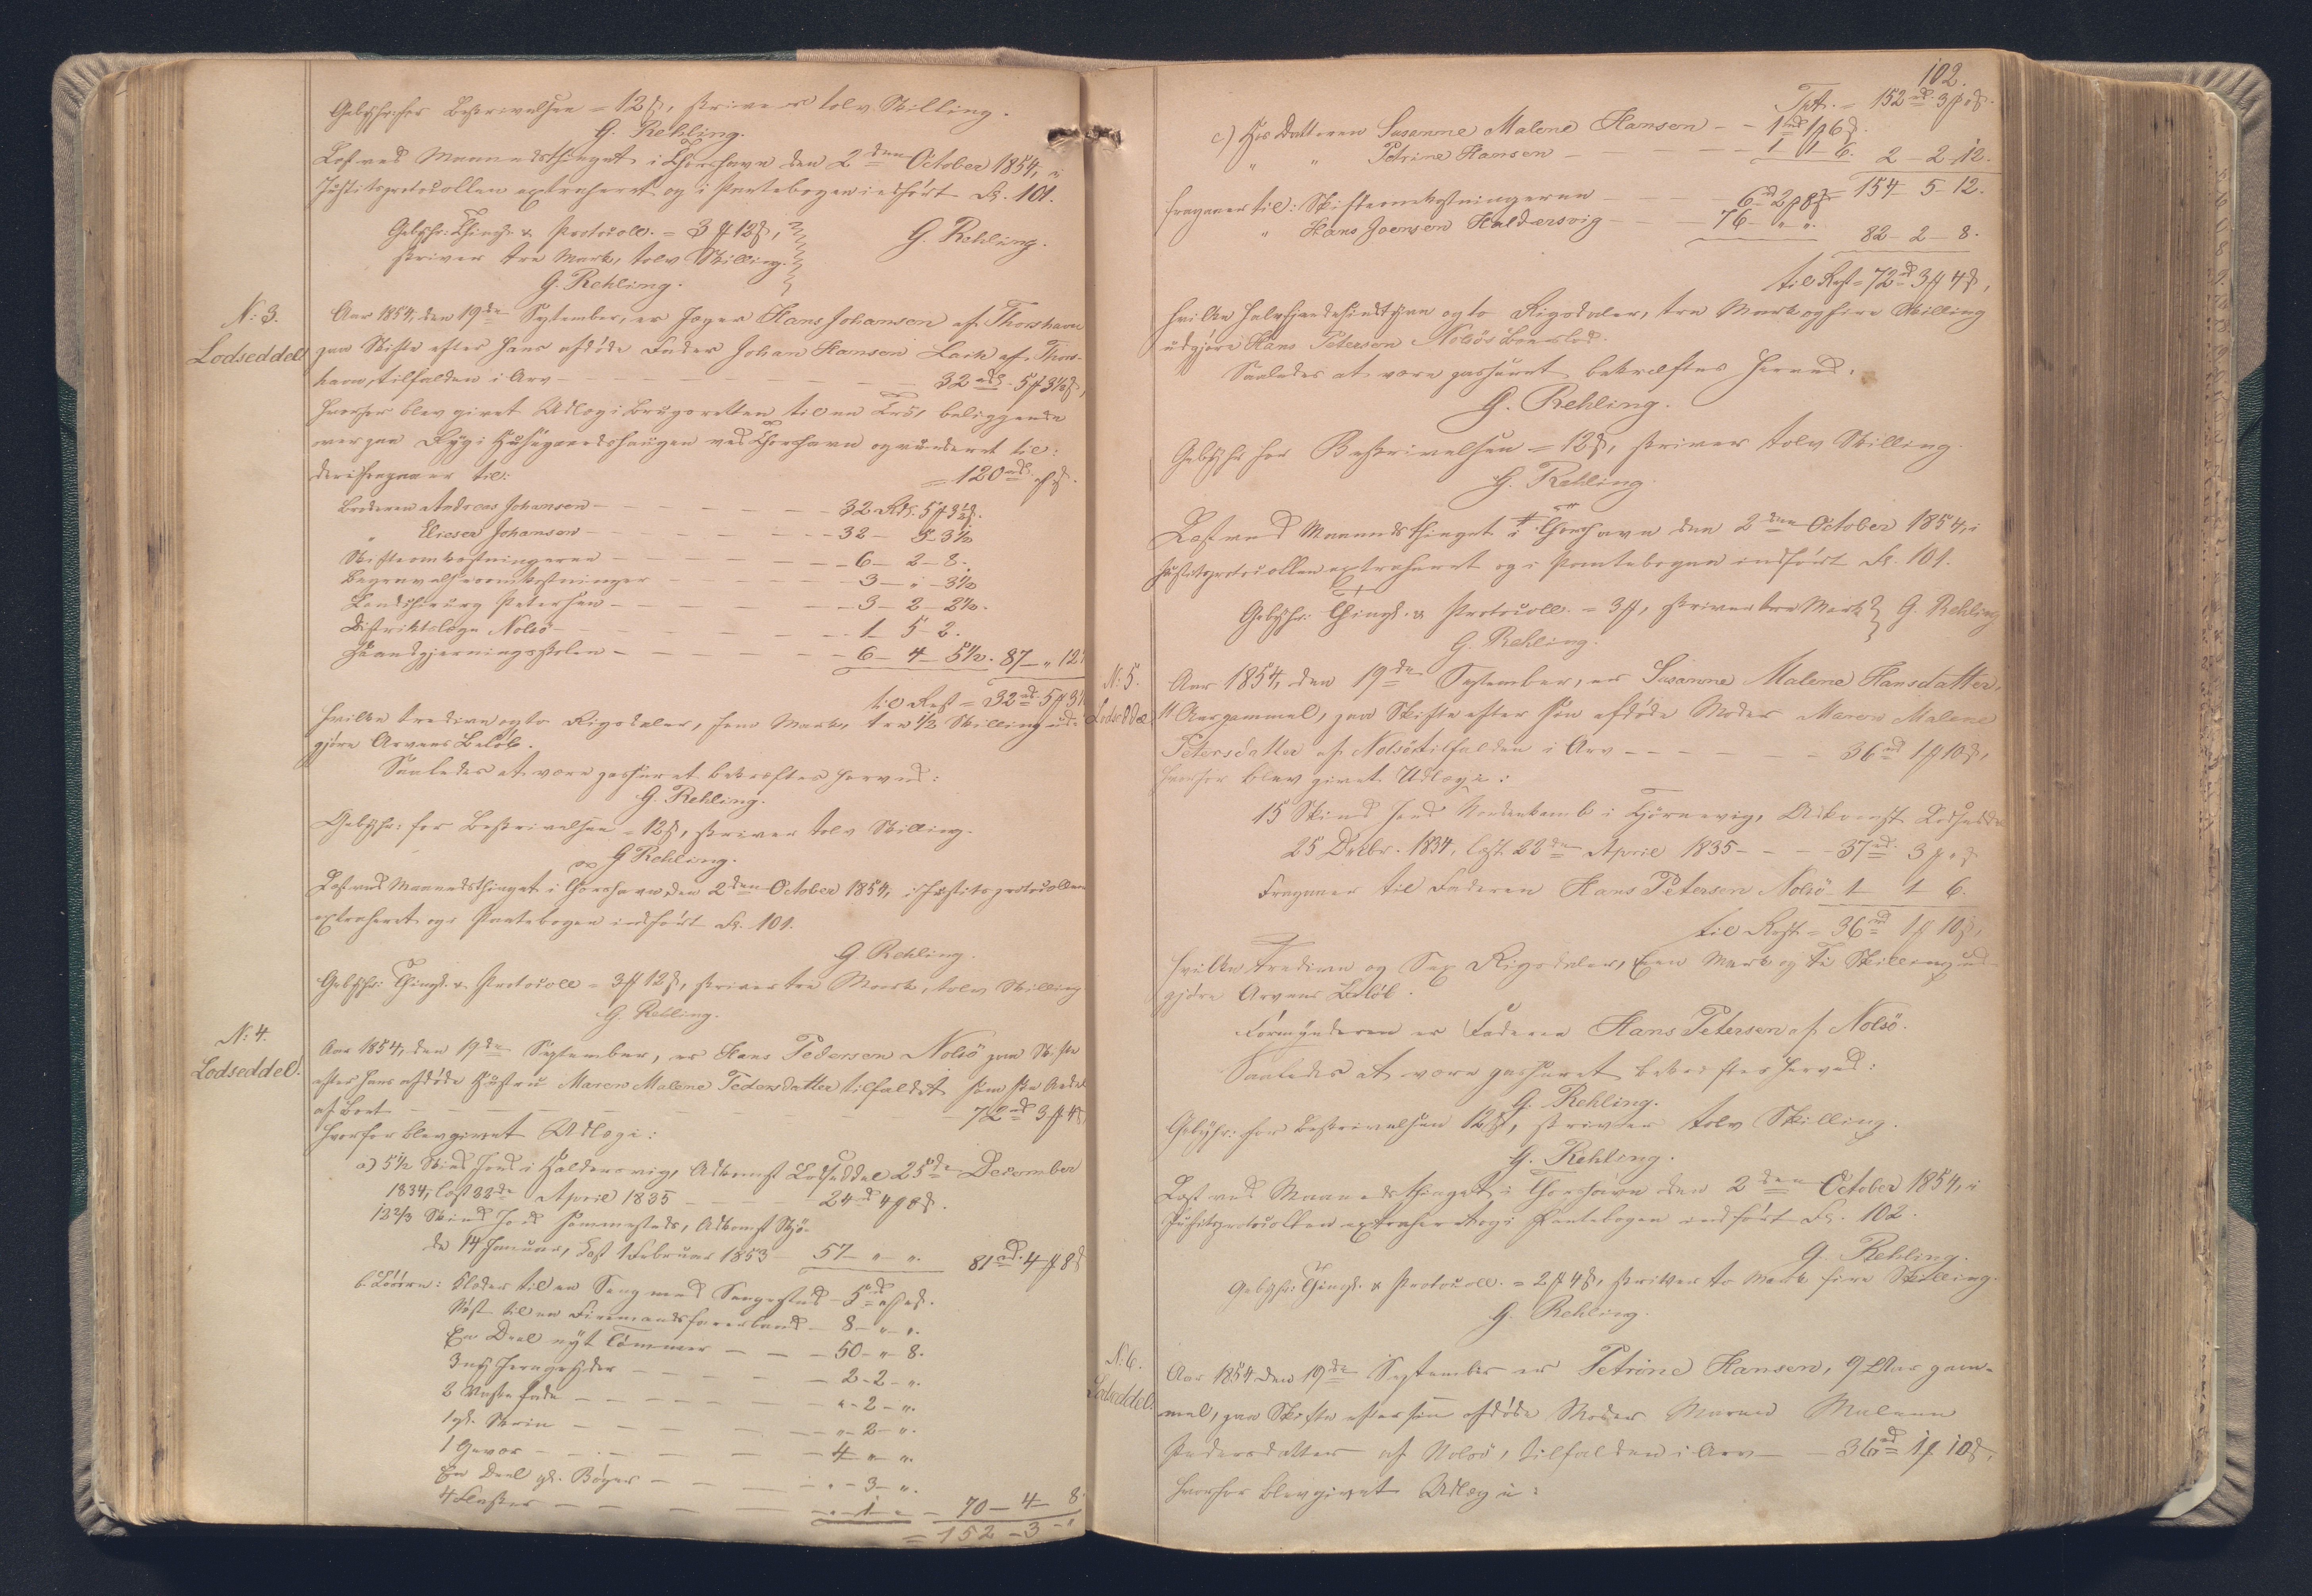 Gebyhr for Beskrivelsen = 12 ß, skriver tolv Skilling.
G. Rehling.
Læst ved Maanedsthinget i Thorshavn den 2den October 1854, i
Justitsprotocollen extraheret og i Pantebogen indført Fol. 101.
Gebyhr: Thingl. & Protocoll. = 3 # 12 ß,
skriver tre Mark, tolv Skilling.
G. Rehling.
G. Rehling.
N: 3.
Lodseddel
Aar 1854, den 19de September, er Hans Johansen af Thorshavn
paa Skifte efter hans afdøde Fader Johan Hansen af Thors-
havn, tilfalden i Arv - 32 rd. 5 # 3½ ß,
hvorfor blev givet Udlæg i Brugsretten til en beliggende
ved Thorshavn og vurderet til:
= 120 rd. " # " ß.
derifragaaer til:
Broderen Andreas Johansen - 32 Rd. 5 # 3½ ß.
" Elieser Johansen - 32 - 5 - 3½
Skifteomkostningerne - 6 - 2 - 8.
Begravelsesomkostninger - 3 - " - 3½
Landchirurg Petersen - 3 - 2 - 2½.
Distriktslæge Nolsø - 1 - 5 - 2.
Haandgjerningsskolen - 6 - 4 - 5½. 87 - " 12½
til Rest = 32 rd. 5 # 3½
hvilke tredive og to Rigsdaler, fem Mark, tre ½ Skilling ud-
gjøre Arvens Beløb.
Saaledes at være passeret bekræftes herved:
G. Rehling.
Gebyhr: for Beskrivelsen = 12 ß, skriver tolv Skilling.
G Rehling.
Læst ved Maanedsthinget i Thorshavn den 2den October 1854, i Justitsprotocollen
extraheret og i Pantebogen indført Fol. 101.
G Rehling.
Gebyhr: Thingl. & Protocoll = 3 # 12 ß, skriver tre Mark, tolv Skilling
G. Rehling.
N: 4.
Lodseddel.
Aar 1854, den 19de September, er Hans Pedersen Nolsö paa Skifte
efter hans afdøde Hustru Maren Malene Pedersdatter tilfaldet som sin Andel
af Boet - 72 rd 3 # 4 ß
hvorfor blev givet Udlæg i:
a) 5½ Skind Jord i Haldersvig, Adkomst Lodseddel 25de December
1834, læst 22de April 1835 - 24 rd 4 # 8 ß.
12 2/3 Skind Jord sammesteds, Adkomst Skjö-
de 14 Januar, læst 1 Februar 1853 - 57 - " - ". 81 rd. 4 # 8 ß
b. Løsøre: Klæder til en Seng med Sengested - 5 rd " # " ß.
Nøst til en Firemandsfarerbaad - 8 - " - ".
En Deel nyt Tømmer - 50 - " - 8.
3 ny Jerngryder - 2 - 2 - ".
2 Vaskefade - " - 2 - ".
1 gl. Skrin - " - 2 - ".
1 Gevær - 4 - " - ".
En Deel gl. Bøger - " - 3 - ".
4 Flasker - " - 1 - " - 70 - 4 - 8
= 152 - 3 - "
102.
Tpt. = 152 rd. 3 # " ß.
c) Hos Datteren Susanne Malene Hansen - - 1 rd 1 # 6 ß.
" " Petrine Hansen - 1 1 6. 2 - 2 - 12.
154 - 5 - 12.
fragaaer til: Skifteomkostningerne - 6 rd 2 # 8 ß
" Hans Joensen Haldersvig - 76 - " ".
82 - 2 - 8.
til Rest = 72 rd 3 # 4 ß,
hvilke halvfjerdesindstyve og to Rigsdaler, tre Mark og fire Skilling
udgjøre Hans Petersen Nolsös Boeslod.
Saaledes at være passeret bekræftes herved.
G. Rehling.
Gebyhr for Beskrivelsen = 12 ß, skriver tolv Skilling.
G. Rehling.
Læst ved Maanedsthinget i Thorshavn den 2den October 1854, i
Justitsprotocollen extraheret og i Pantebogen indført Fol. 101.
Gebyhr: Thingl. & Protocoll. = 3 #, skriver tre Mark G. Rehling
G. Rehling.
N: 5.
Lodseddel
Aar 1854, den 19de September, er Susanne Malene Hansdatter,
11 Aar gammel, paa Skifte efter sin afdøde Moder Maren Malene
Petersdatter af Nolsö tilfalden i Arv - 36 rd 1 # 10 ß,
hvorfor blev givet Udlæg i:
15 Skind Jord i Tjörnevig, Adkomst Lodseddel
25 Decbr. 1834, læst 22de April 1835 - - - 37 rd. 3 # " ß
Fragaaer til Faderen Hans Petersen Nolsö - 1 1 6.
til Rest = 36 rd 1 # 10 ß,
hvilke tredive og Sex Rigsdaler, Een Mark og Ti Skilling ud-
gjøre Arvens Beløb.
Formynderen er Faderen Hans Petersen af Nolsö.
Saaledes at være passeret bekræftes herved:
G. Rehling.
Gebyhr: for Beskrivelsen 12 ß, skriver tolv Skilling.
G. Rehling.
Læst ved Maanedsthinget i Thorshavn den 2den October 1854, i
Justitsprotocollen extraheret og i Pantebogen indført Fol. 102.
G. Rehling.
Gebyhr: Thingl. & Protocoll. = 2 # 4 ß, skriver to Mark fire Skilling.
G. Rehling.
N: 6.
Lodseddel.
Aar 1854 den 19de September er Petrine Hansen, 9 Aar gam-
mel, paa Skifte efter sin afdøde Moder Maren Malene
Pedersdatter af Nolsö, tilfalden i Arv - 36 rd 1 # 10 ß,
hvorfor blev givet Udlæg i: